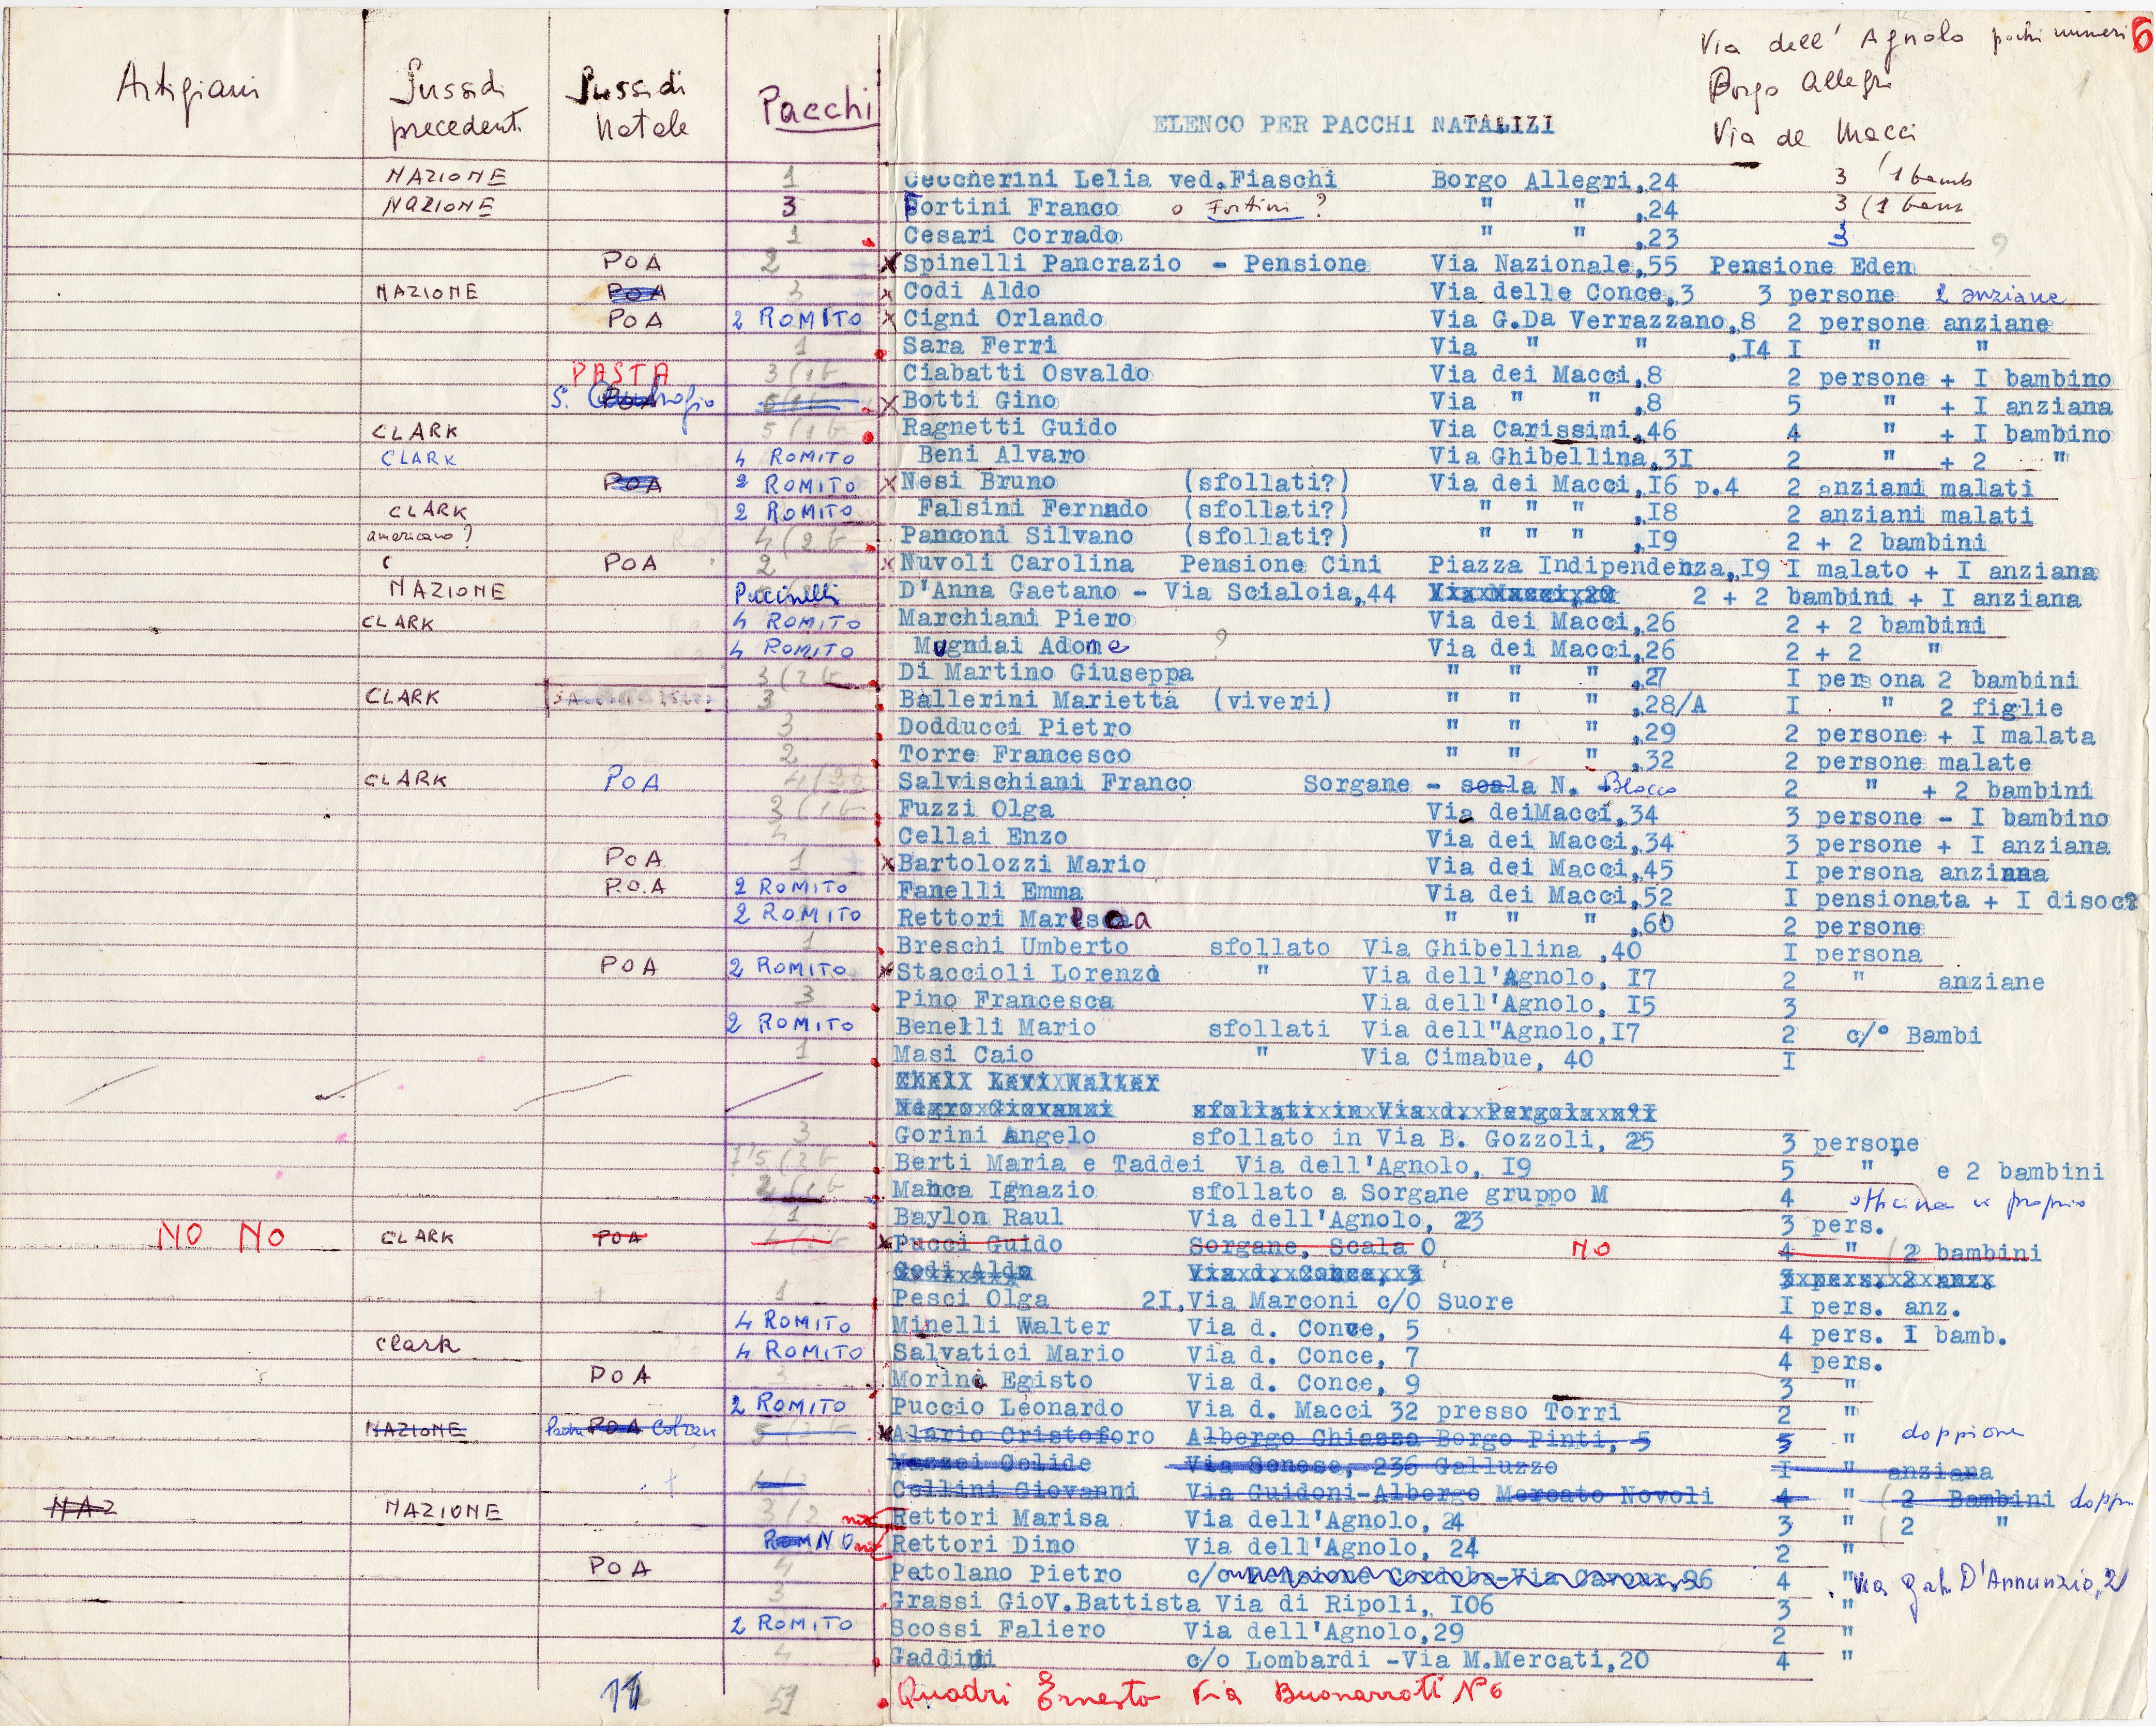 Via dell' Agnolo pochi numeri 6
Borgo Allegri
Via de Macci
Artigiani Sussidi precedenti Sussidi Natale Pacchi
ELENCO PER PACCHI NATALIZI
NAZIONE 1 Ceccherini Lelia ved.Fiaschi Borgo Allegri,24 3 1 bamb
NAZIONE 3 Fortini Franco o Fortini ? " " ,24 3 (1 bamb
1 Cesari Corrado " " ,23 3 ?
POA 2 x Spinelli Pancrazio - Pensione Via Nazionale,55 Pensione Eden
NAZIONE POA 3 x Codi Aldo Via delle Conce,3 3 persone 2 anziane
POA 2 ROMITO x Cigni Orlando Via G.Da Verrazzano,8 2 persone anziane
1 Sara Ferri Via " " ,I4 I " "
PASTA 3 (1 b Ciabatti Osvaldo Via dei Macci,8 2 persone + I bambino
S. POA x Botti Gino Via " " ,8 5 " + I anziana
CLARK 5 (1 b Ragnetti Guido Via Carissimi,46 4 " + I bambino
CLARK 4 ROMITO Beni Alvaro Via Ghibellina,3I 2 " + 2 "
POA 2 ROMITO x Nesi Bruno (sfollati?) Via dei Macci,I6 p.4 2 anziani malati
CLARK 2 ROMITO Falsini Fernado (sfollati?) " " " ,I8 2 anziani malati
americano ? 4 (2 b Panconi Silvano (sfollati?) " " " ,I9 2 + 2 bambini
POA 2 x Nuvoli Carolina Pensione Cini Piazza Indipendenza,I9 I malato + I anziana
NAZIONE Puccinelli D'Anna Gaetano - Via Scialoia,44 2 + 2 bambini + I anziana
CLARK 4 ROMITO Marchiani Piero Via dei Macci,26 2 + 2 bambini
4 ROMITO Mugniai Adome ? Via dei Macci,26 2 + 2 "
3 (2 b Di Martino Giuseppa " " " ,27 I persona 2 bambini
CLARK 3 Ballerini Marietta (viveri) " " " ,28/A I " 2 figlie
3 Dodducci Pietro " " " ,29 2 persone + I malata
2 Torre Francesco " " " ,32 2 persone malate
CLARK POA Salvischiani Franco Sorgane - scala N. Blocco 2 " + 2 bambini
3 (1 b Fuzzi Olga Via deiMacci,34 3 persone - I bambino
4 Cellai Enzo Via dei Macci,34 3 persone + I anziana
POA 1 x Bartolozzi Mario Via dei Macci,45 I persona anziana
P.O.A 2 ROMITO Fanelli Emma Via dei Macci,52 I pensionata + I disoc?
2 ROMITO Rettori " " " ,60 2 persone
1 Breschi Umberto sfollato Via Ghibellina ,40 I persona
POA 2 ROMITO x Staccioli Lorenzo " Via dell'Agnolo, I7 2 " anziane
3 Pino Francesca Via dell'Agnolo, I5 3
2 ROMITO Benelli Mario sfollati Via dell"Agnolo,I7 2 c/° Bambi
1 Masi Caio " Via Cimabue, 40 I
Levi Walter
Negro Giovanni sfollati in Via d. Pergola n°I
3 Gorini Angelo sfollato in Via B. Gozzoli, 25 3 persone
5 (2 b Berti Maria e Taddei Via dell'Agnolo, I9 5 " e 2 bambini
Manca Ignazio sfollato a Sorgane gruppo M 4 officina
1 Baylon Raul Via dell'Agnolo, 23 3 pers.
NO NO CLARK POA x Pucci Guido Sorgane, Scala O NO 4 " (2 bambini
Codi Aldo Via d. Conce, 3 3 pers. 2 anz
1 Pesci Olga 2I,Via Marconi c/O Suore I pers. anz.
4 ROMITO Minelli Walter Via d. Conce, 5 4 pers. I bamb.
Clark 4 ROMITO Salvatici Mario Via d. Conce, 7 4 pers.
POA 3 Morino Egisto Via d. Conce, 9 3 "
2 ROMITO Puccio Leonardo Via d. Macci 32 presso Torri 2 "
NAZIONE POA 5 x Alario Cristoforo Albergo Chiazza Borgo Pinti, 5 5 " doppione
Mazzei Celide Via Senese, 236 Galluzzo I " anziana
Cellini Giovanni Via Guidoni-Albergo Mercato Novoli 4 " (2 Bambini
NAZ NAZIONE 3 (2 Rettori Marisa Via dell'Agnolo, 24 3 " (2 "
ROM NO Rettori Dino Via dell'Agnolo, 24 2 "
POA 4 Patolano Pietro c/o Pensione Cordoba-Via Cavour,86 4 " Via Gab. D'Annunzio, 2
3 Grassi GioV.Battista Via di Ripoli, I06 3 "
2 ROMITO Scossi Faliero Via dell'Agnolo,29 2 "
4 Gaddini c/o Lombardi -Via M.Mercati,20 4 "
11 51 Quadri Ernesto Via Buonarroti N° 6